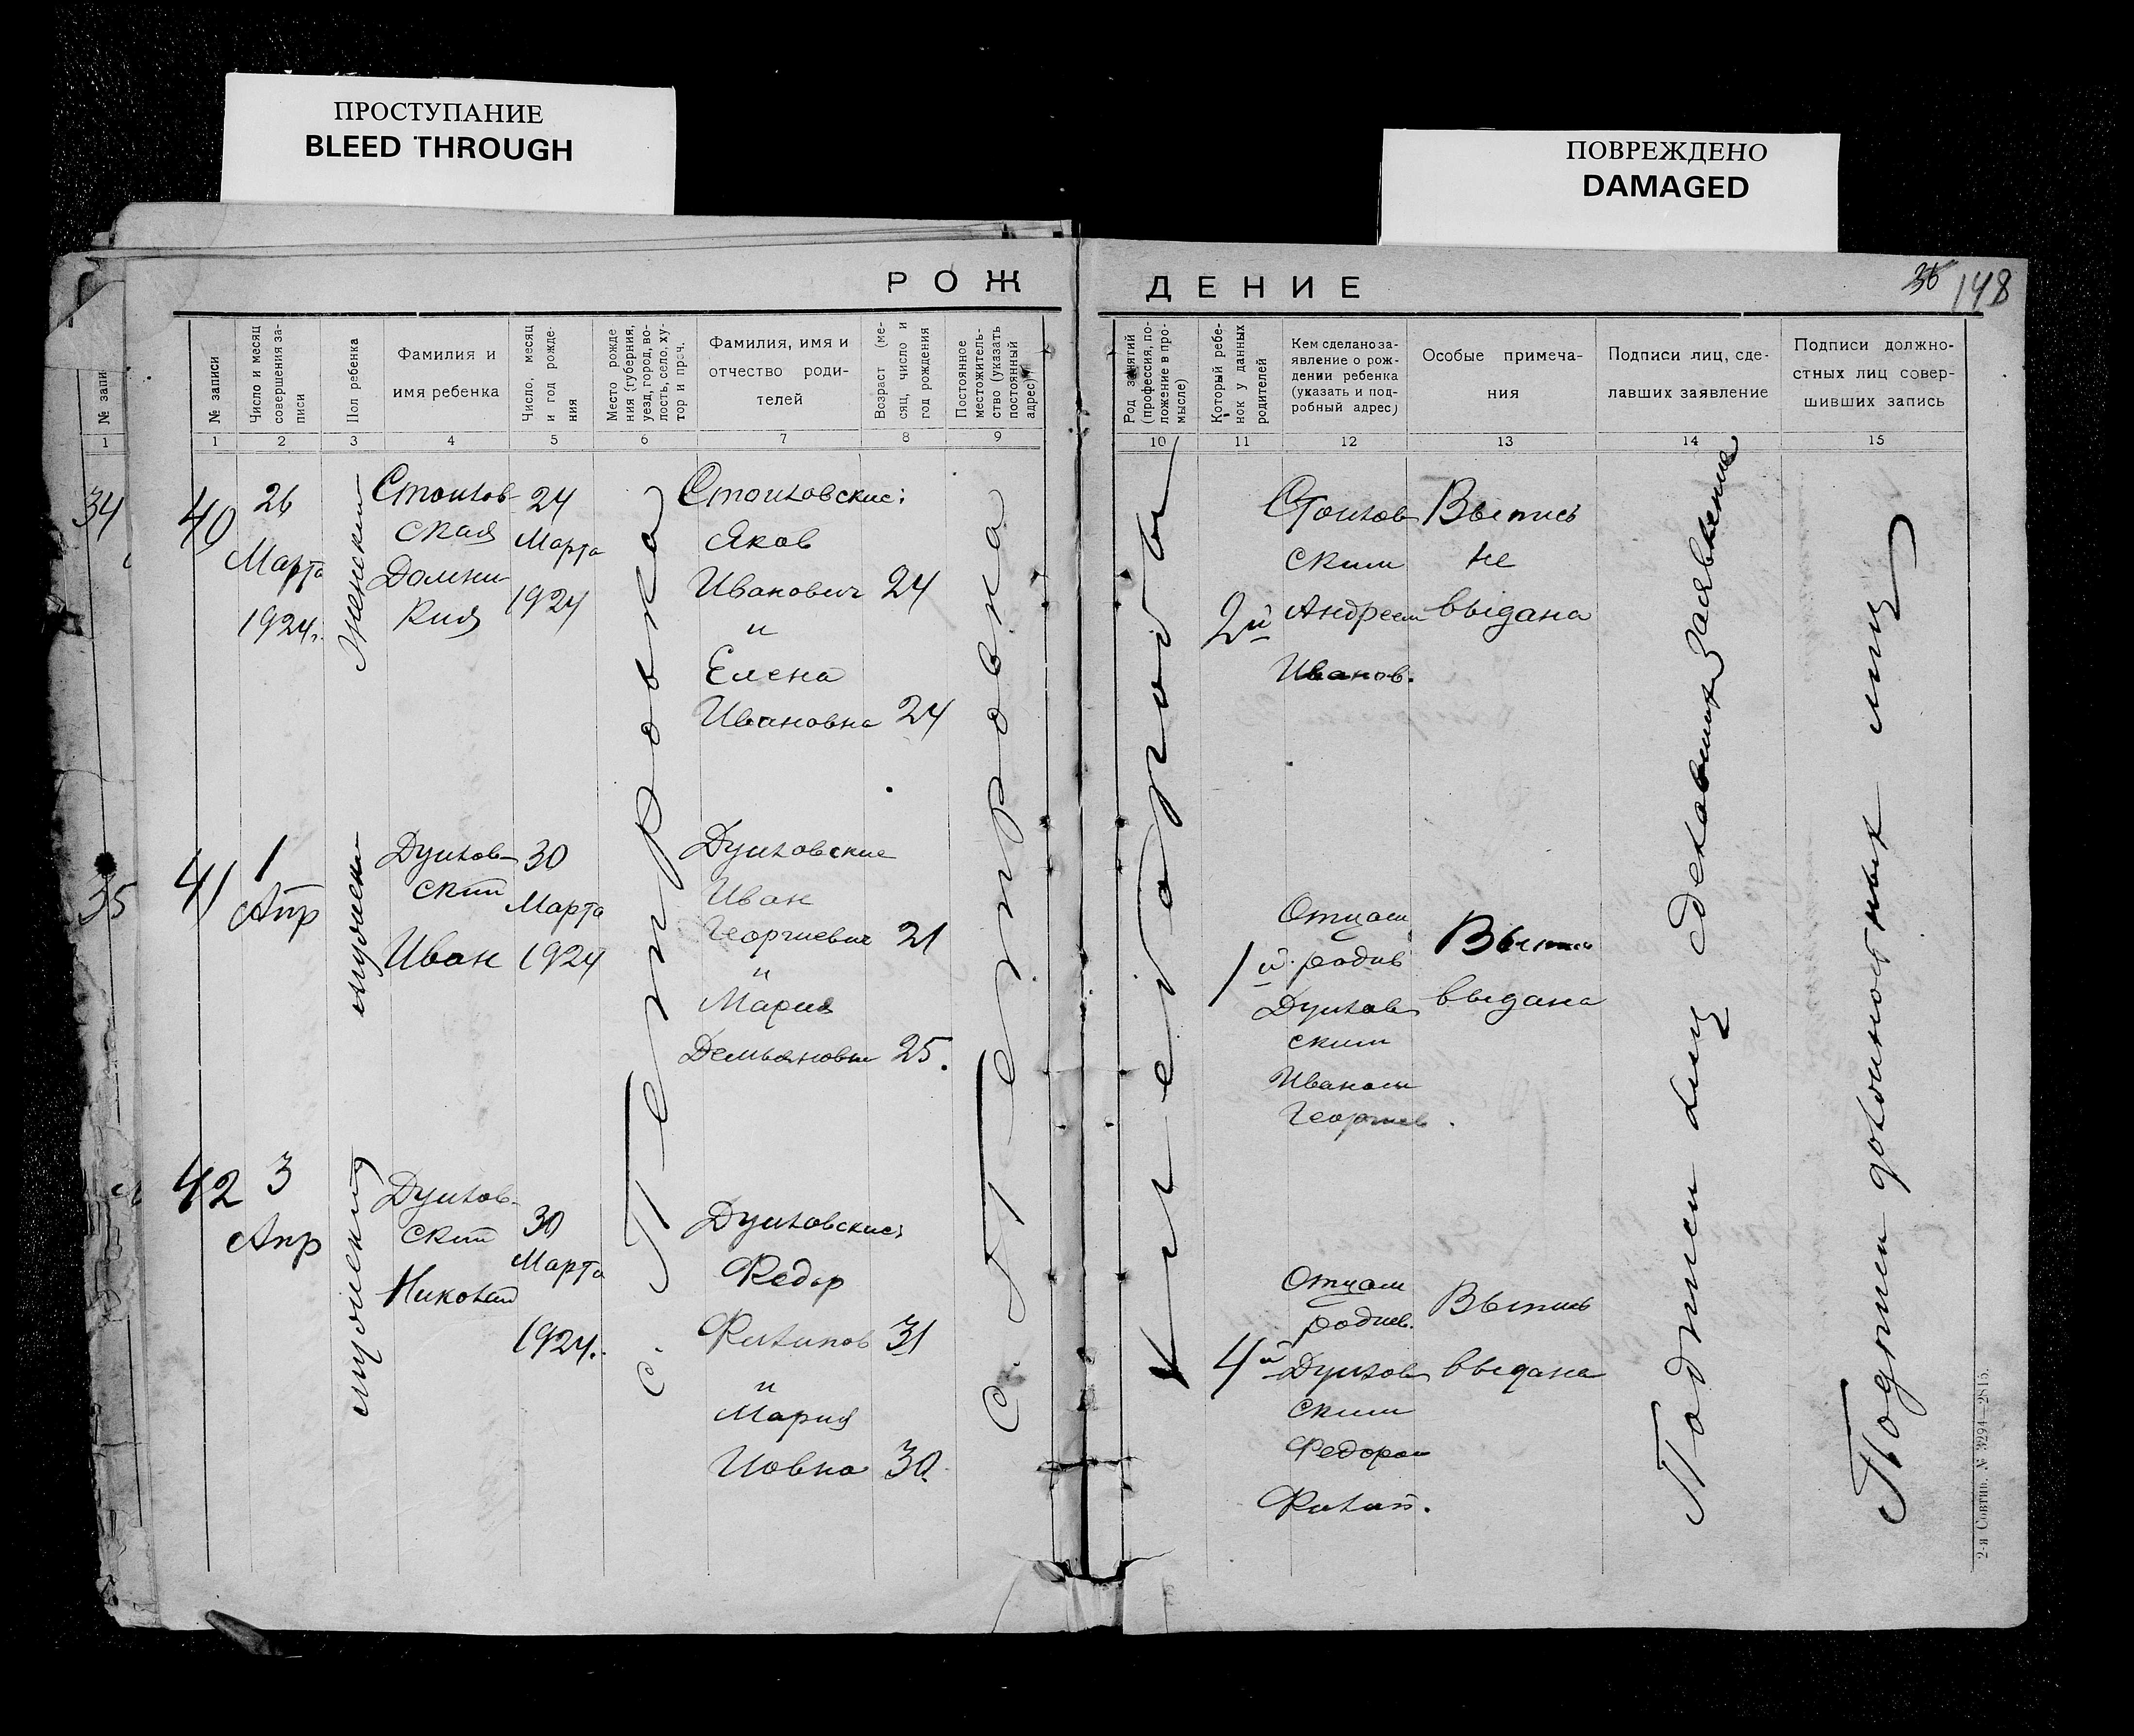 ПРОСТУПАНИЕ
BLEED THROUGH
ПОВРЕЖДЕНО
DAMAGED
РОЖ
ДЕНИЕ
36 148
№ запи
1
34
35
№ записи
Число и месяц
совершения за-
писи
Пол ребенка
Фамилия и
имя ребенка
Число, месяц
и год рожде-
ния
Место рожде
ния (губерния,
уезд, город, во-
лость, село, ху-
тор и проч.
Фамилия, имя и
отчество роди-
телей
Возраст (ме-
сяц, число и
год рождения
Постоянное
местожитель-
ство (указать
постоянный
адрес)
Род занятий
(профессия, по-
ложение в про-
мысле)
Который ребе-
нок у данных
родителей
Кем сделано за-
явление о рож-
дении ребенка
(указать и под-
робный адрес)
Особые примеча-
ния
Подписи лиц, сде-
лавших заявление
Подписи должно-
стных лиц совер-
шивших запись
1 2 3 4 5 6 7 8 9 10 11 12 13 14 15
40
26
Марта
1924.
Женский
Стоилов-
ская
Домни-
кия
24
Марта
1924
Стоиловские:
Яков
Иванович 24
и
Елена
Ивановна 24
2й
Стоилов
ским
Андреем
Иванов.
Выпись
не
выдана
41
1
Апр
мужески
Дуилов-
ский
Иван
30
Марта
1924
Дуиловские
Иван
Георгиевич 21
и
Мария
Демьяновн 25.
1й
Отцом
родив
Дуилов
ским
Иваном
Георгиев.
Выпись
выдана
42
3
Апр
мужеский
Дуилов-
ский
Николай
30
Марта
1924.
Дуиловские:
Федор
Филипов 31
и
Мария
Иовна 30.
4й
Отцом
родив.
Дуилов
ским
Федором
Филип.
Выпись
выдана
с. Петровка
с. Петровка
Хлебороб
Подписи лиц сделавших заявление
Подписи должностных лиц
2-я Совтип. № 3294—2815.